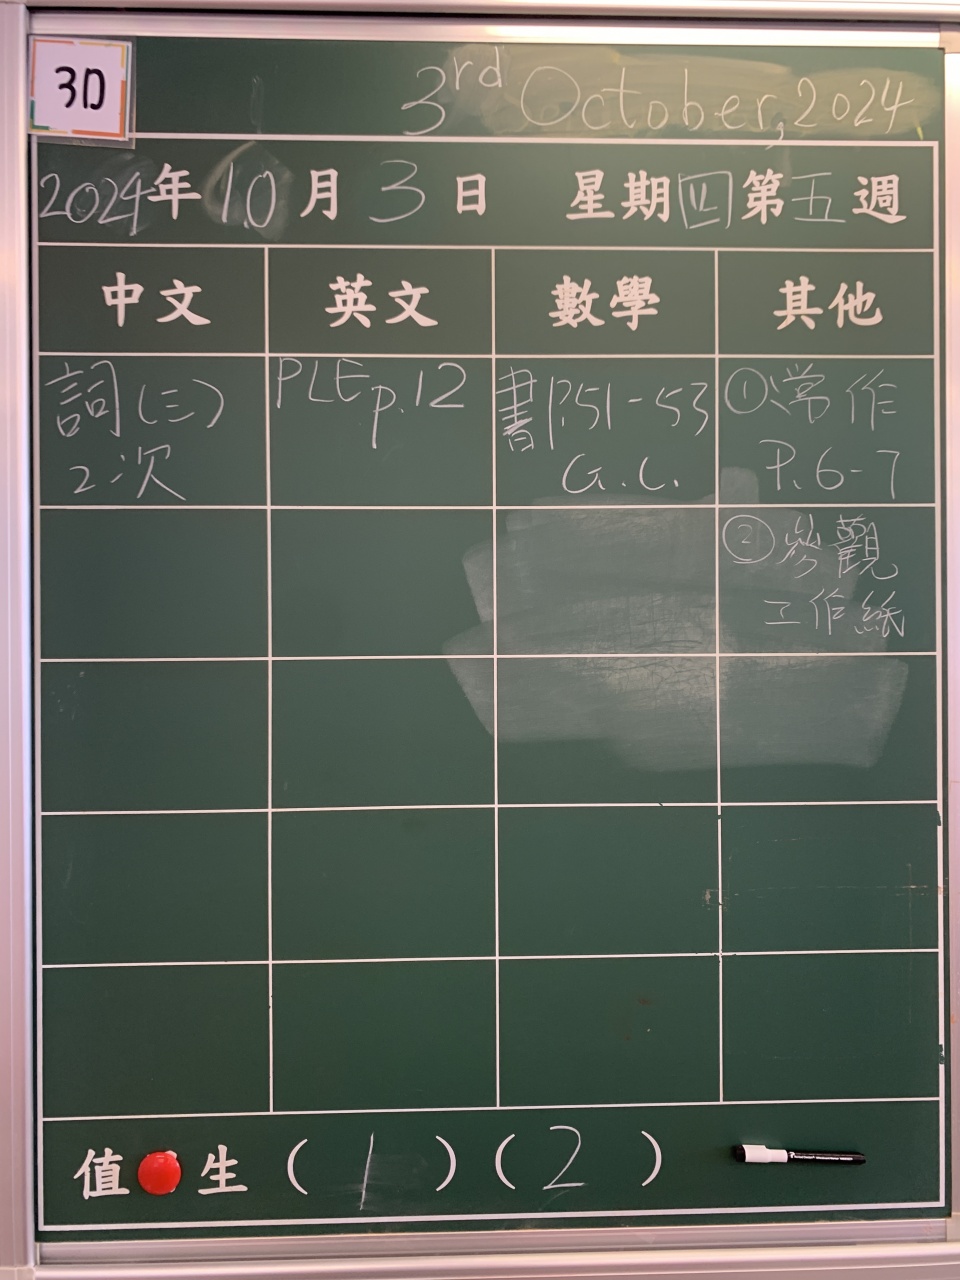 3D
3rd October, 2024
2024年10月3日 星期四第五週
中文 英文 數學 其他
詞(三)
2次
PLE p.12
書P.51-53
G.C.
①常作
P.6-7
②參觀
工作紙
值 生 (1)(2)